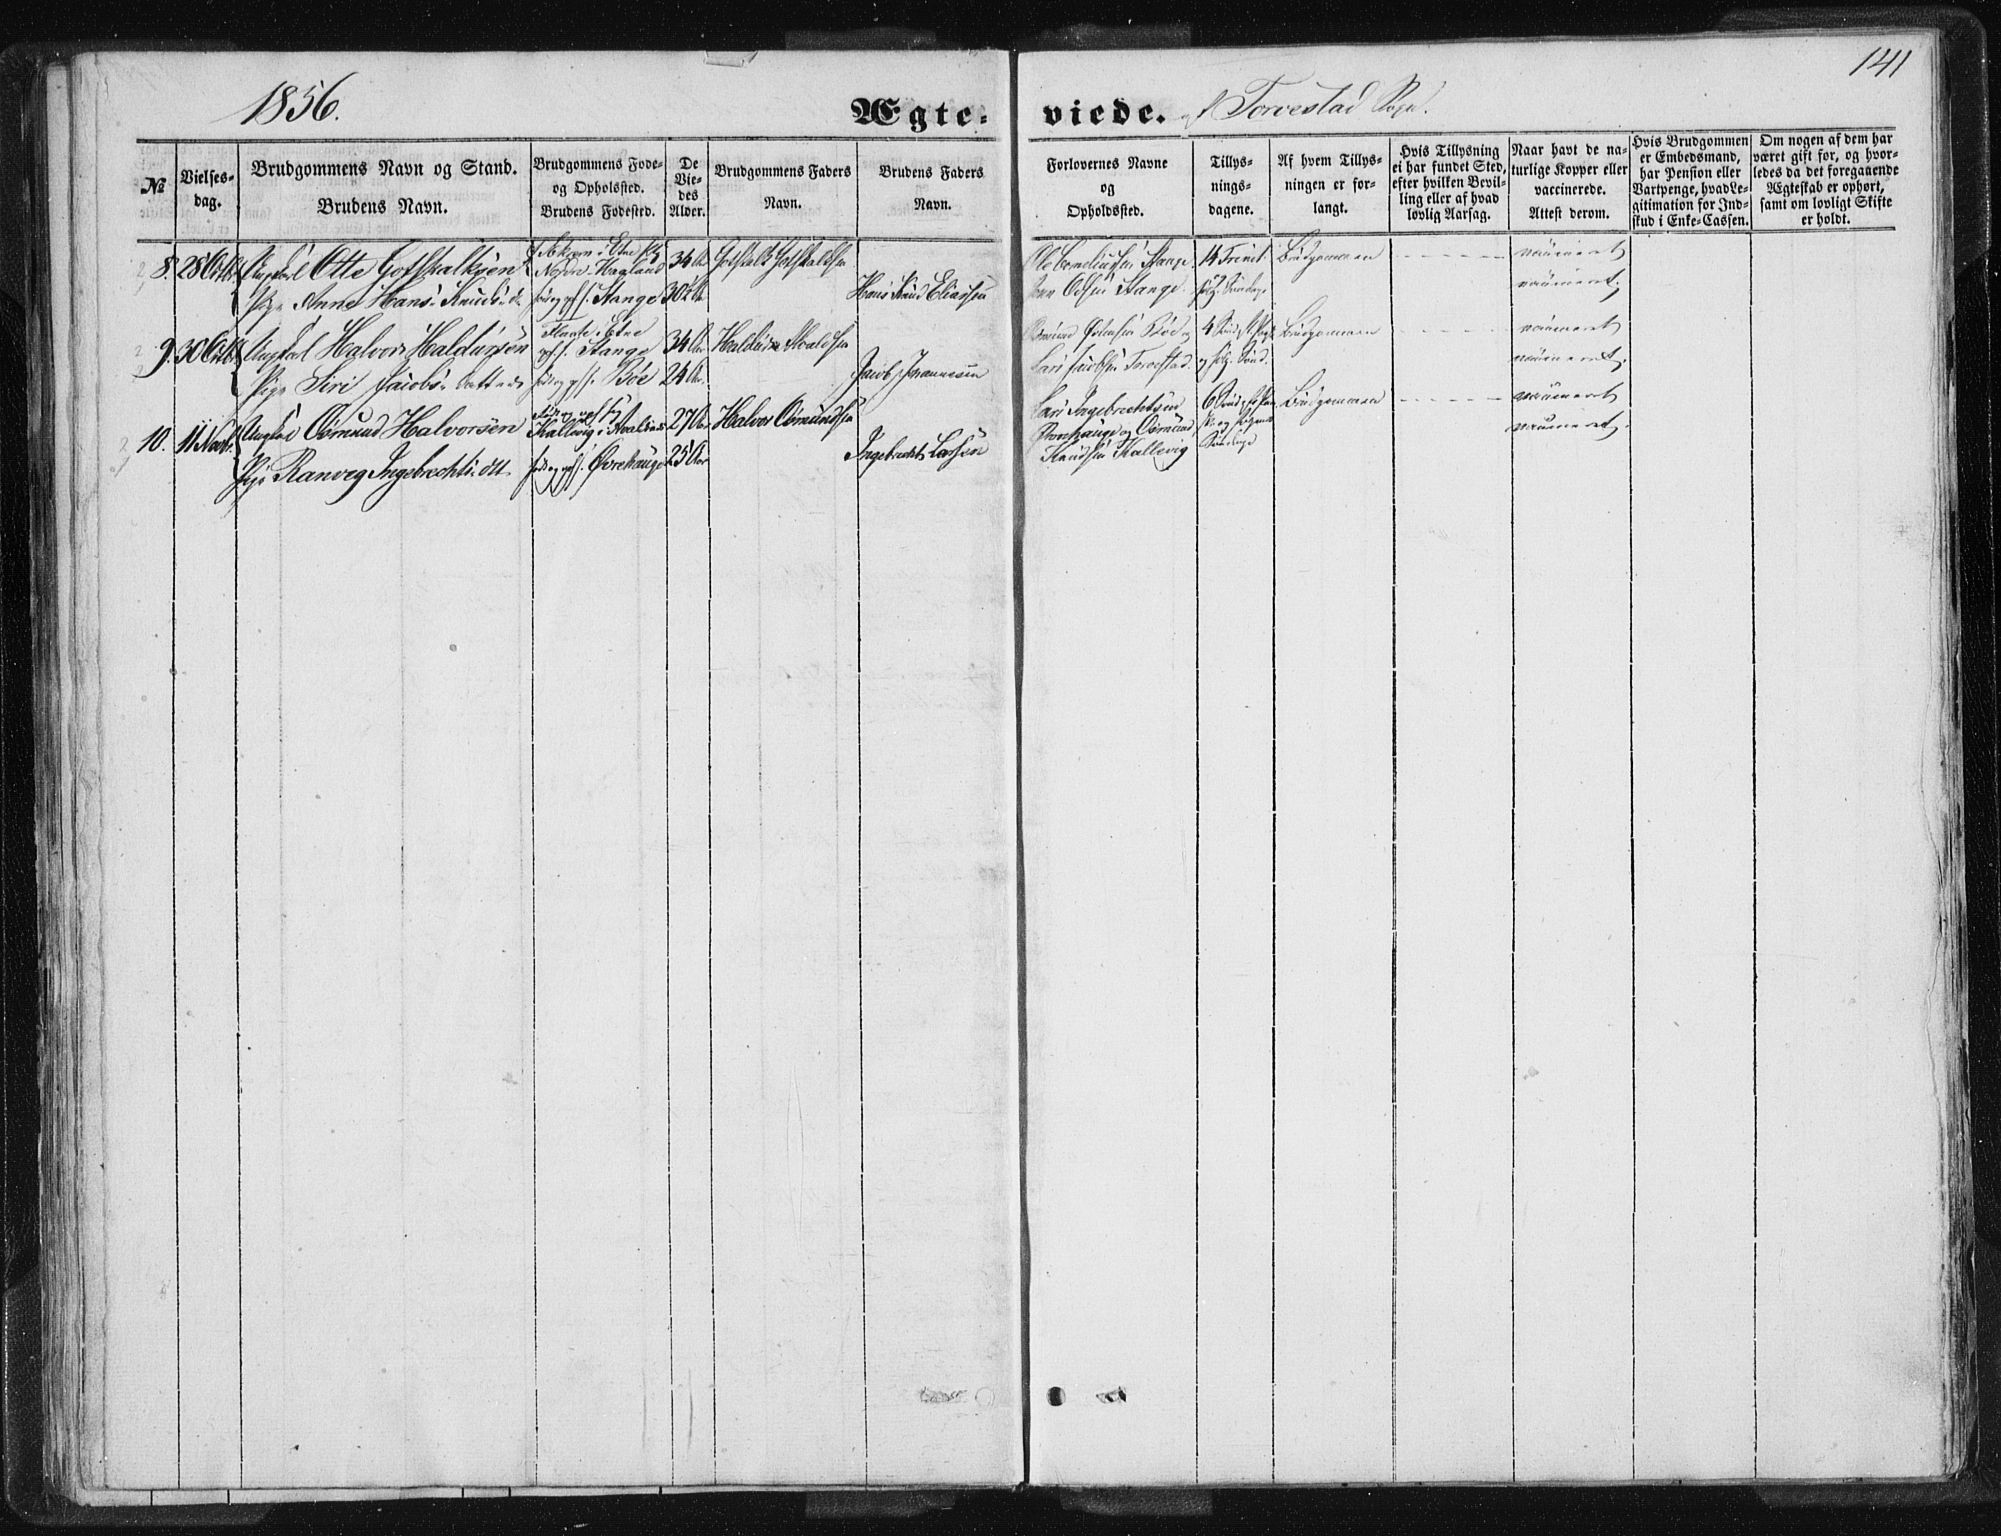 141
1856.
Ægte-
viede. af Torvestad Sogn.
№
Vielses-
dag.
Brudgommens Navn og Stand.
Brudens Navn.
Brudgommens Føde-
og Opholdssted.
Brudens Fødested.
De
Vie-
des
Alder.
Brudgommens Faders
Navn.
Brudens Faders
Navn.
Forlovernes Navne
og
Opholdssted.
Tillys-
nings-
dagene.
Af hvem Tillys-
ningen er for-
langt.
Hvis Tillysning
ei har fundet Sted,
efter hvilken Bevil-
ling eller af hvad
lovlig Aarsag.
Naar havt de na-
turlige Kopper eller
vaccinerede.
Attest derom.
Hvis Brudgommen
er Embedsmand,
har Pension eller
Vartpenge, hvad Le-
gitimation for Ind-
skud i Enke-Cassen.
Om nogen af dem har
været gift før, og hvor-
ledes da det foregaaende
Ægteskab er ophørt,
samt om lovligt Skifte
er holdt.
8. 28 Octbr. Ungkarl Otte Gotskalksen
Pige Anne Hans Knuds. d.
Etne
Nordr. Hagland
Stange
34 Aar
30 Aar
Gotskalk Gotskalksen
Hans Knud Eliassen
Ole Corneliussen Stange
Olsen Stange
14 Trinit.
følg. Søndage
Brudgommen
vaccineret
vaccineret.
9. 30 Octbr. Ungkarl Halvor Haldorsen
Pige Siri Jacobs Datter
Etne
Stange
Bøe
34 Aar
24 Aar.
Haldor
Jacob Johannesen
Østensen Bøe og
Lars Jacobsen Torvestad.
og følg. Sønd.
Brudgommen
vaccineret
vaccineret.
10. 11 Novbr. Ungkarl Osmund Halvorsen
Pige Ranveg Ingebrechts. dtt
Kallevig i Avaldsnes
født og opf. Øvrehauge
27 Aar
25 Aar
Halvor Osmundsen
Ingebrecht Larsen
Lars Ingebrechtsen
Øvrehauge og Osmund
Knudsen Kallevig
og følgende
Søndage
Brudgommen
vaccineret
vaccineret.